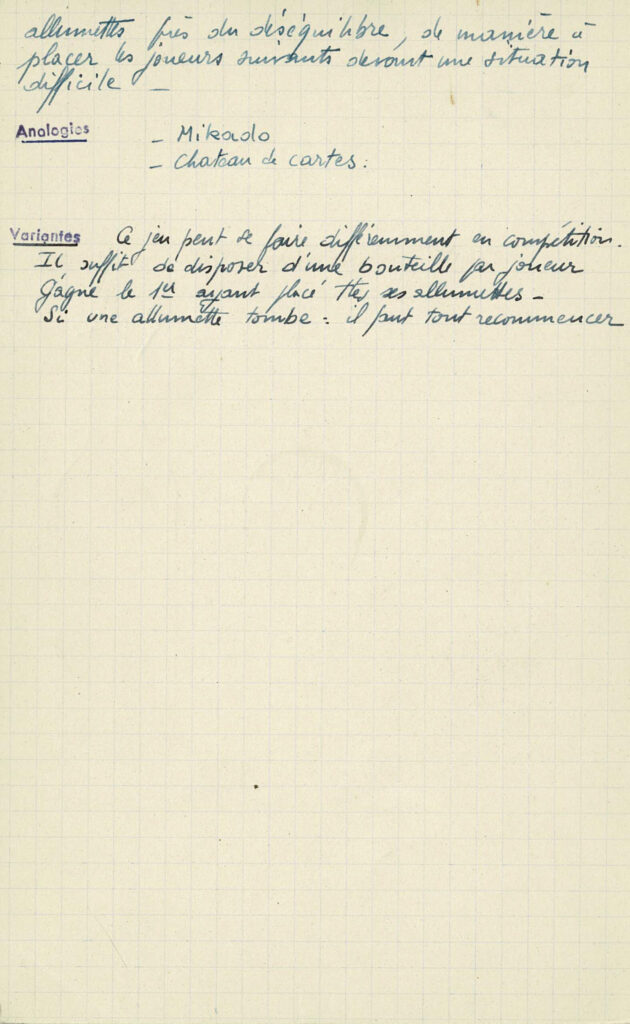 allumettes près du déséquilibre, de manière à
placer les joueurs suivants devant une situation
difficile –
Analogies – Mikado
– Chateau de cartes :
Variantes Ce jeu peut se faire différemment en compétition.
Il suffit de disposer d'une bouteille par joueur
Gagne le 1er ayant placé ttes ses allumettes –
Si une allumette tombe : il faut tout recommencer